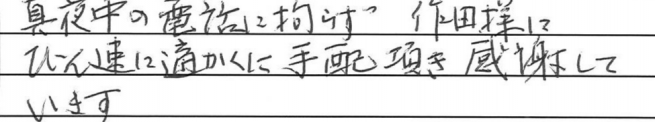 真夜中の電話に拘らず 作田様に
びん速に適かくに手配頂き感謝して
います